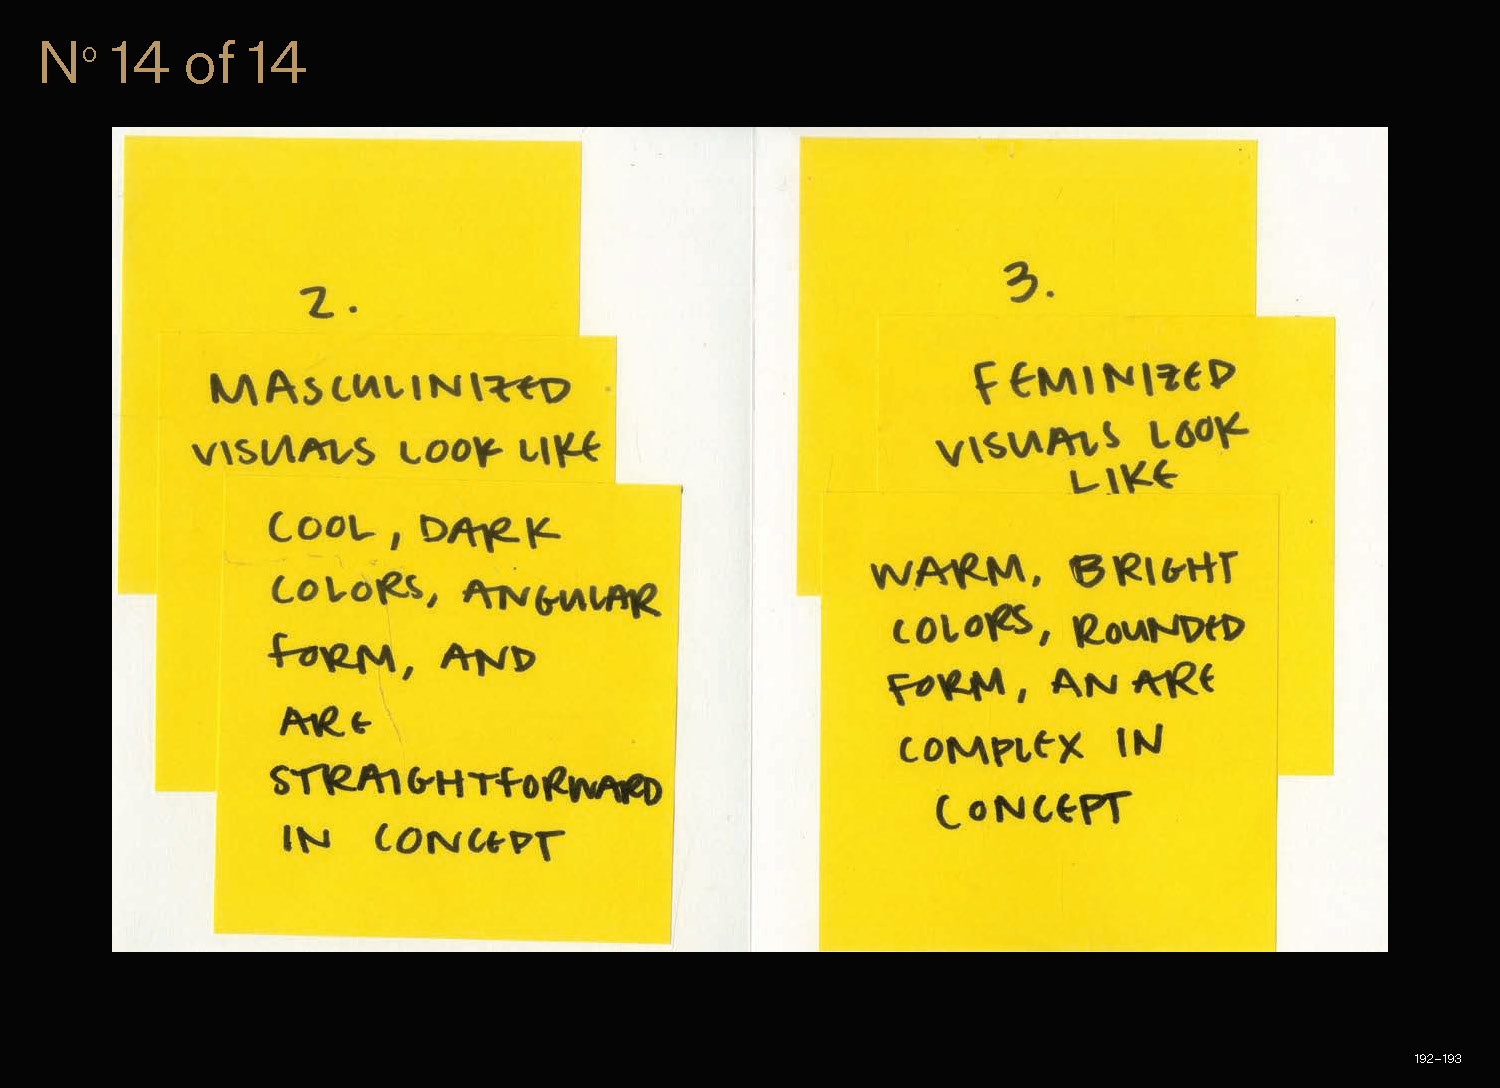 Nº 14 of 14
2.
MASCULINIZED
VISUALS LOOK LIKE
COOL, DARK
COLORS, ANGULAR
FORM, AND
ARE
STRAIGHTFORWARD
IN CONCEPT
3.
FEMINIZED
VISUALS LOOK
LIKE
WARM, BRIGHT
COLORS, ROUNDED
FORM, AN ARE
COMPLEX IN
CONCEPT
192–193